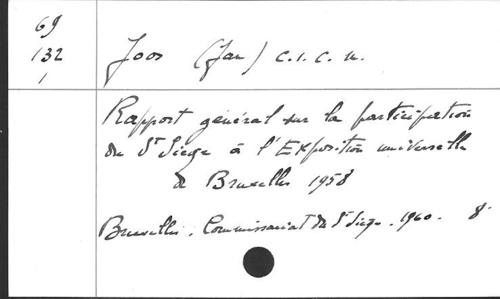 69
132
1
Joos (Jan) C.I.C.M.
Rapport général sur la participation
du St Siège à l'Exposition universelle
de Bruxelles 1958
Bruxelles. Commissariat du St Siège. 1960. 8°